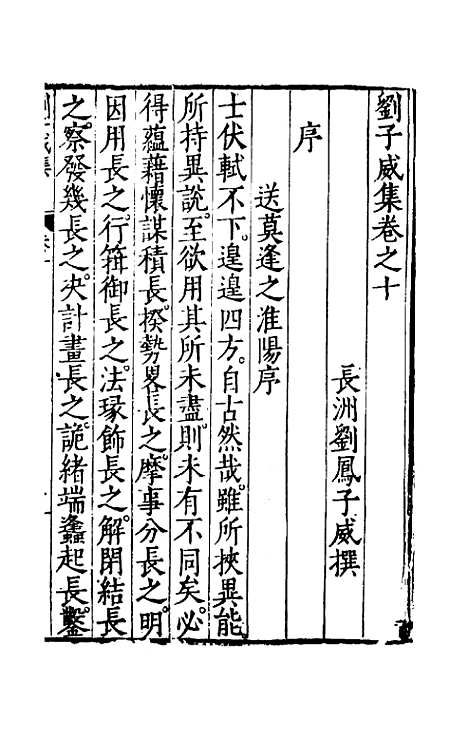 劉子威集卷之十
長洲劉鳳子威撰
序
送莫逢之淮陽序
士伏軾不下。遑遑四方。自古然哉。雖所挾異能
所持異說。至欲用其所未盡則未有不同矣。必
得蘊藉懷謀積長。揆勢畧長之。摩事分長之。明
因用長之。行箝御長之。法瑑飾長之。解閉結長
之。察發幾長之。決計畫長之。詭緒端蠭起長。鑿